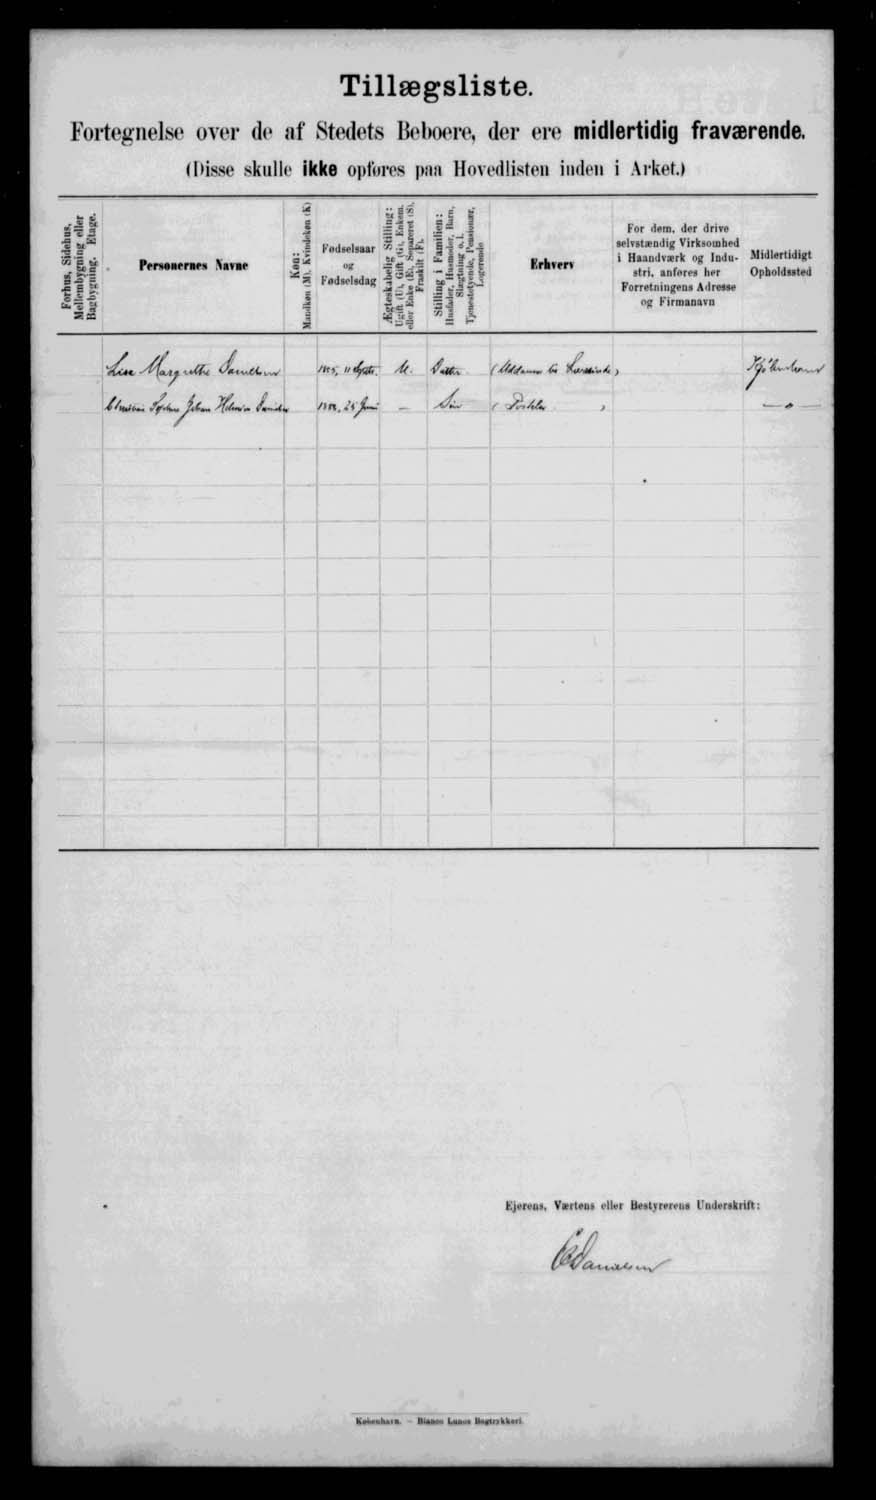 Tillægsliste.
Fortegnelse over de af Stedets Beboere, der ere midlertidig fraværende.
(Disse skulle ikke opføres paa Hovedlisten inden i Arket.)
Forhus, Sidehus,
Mellembygning eller
Bagbygning. Etage.
Personernes Navne
Køn:
Mandkøn (M), Kvindekøn (K)
Fødselsaar
og
Fødselsdag
Ægteskabelig Stilling:
Ugift (U), Gift (G), Enkem.
eller Enke (E), Separeret (S),
Fraskilt (F).
Stilling i Familien:
Husfader, Husmoder, Barn,
Slægtning o. l.
Tjenestetyende, Pensionær,
Logerende
Erhverv
For dem, der drive
selvstændig Virksomhed
i Haandværk og Indu-
stri, anføres her
Forretningens Adresse
og Firmanavn
Midlertidigt
Opholdssted
Margrethe Danielsen 11 Septbr. U. Datter (Uddannes til Lærerinde) Kjøbenhavn
Johan 25 Juni — Søn ( ) — " —
Ejerens, Værtens eller Bestyrerens Underskrift:
Danielsen
København. — Bianco Lunos Bogtrykkeri.